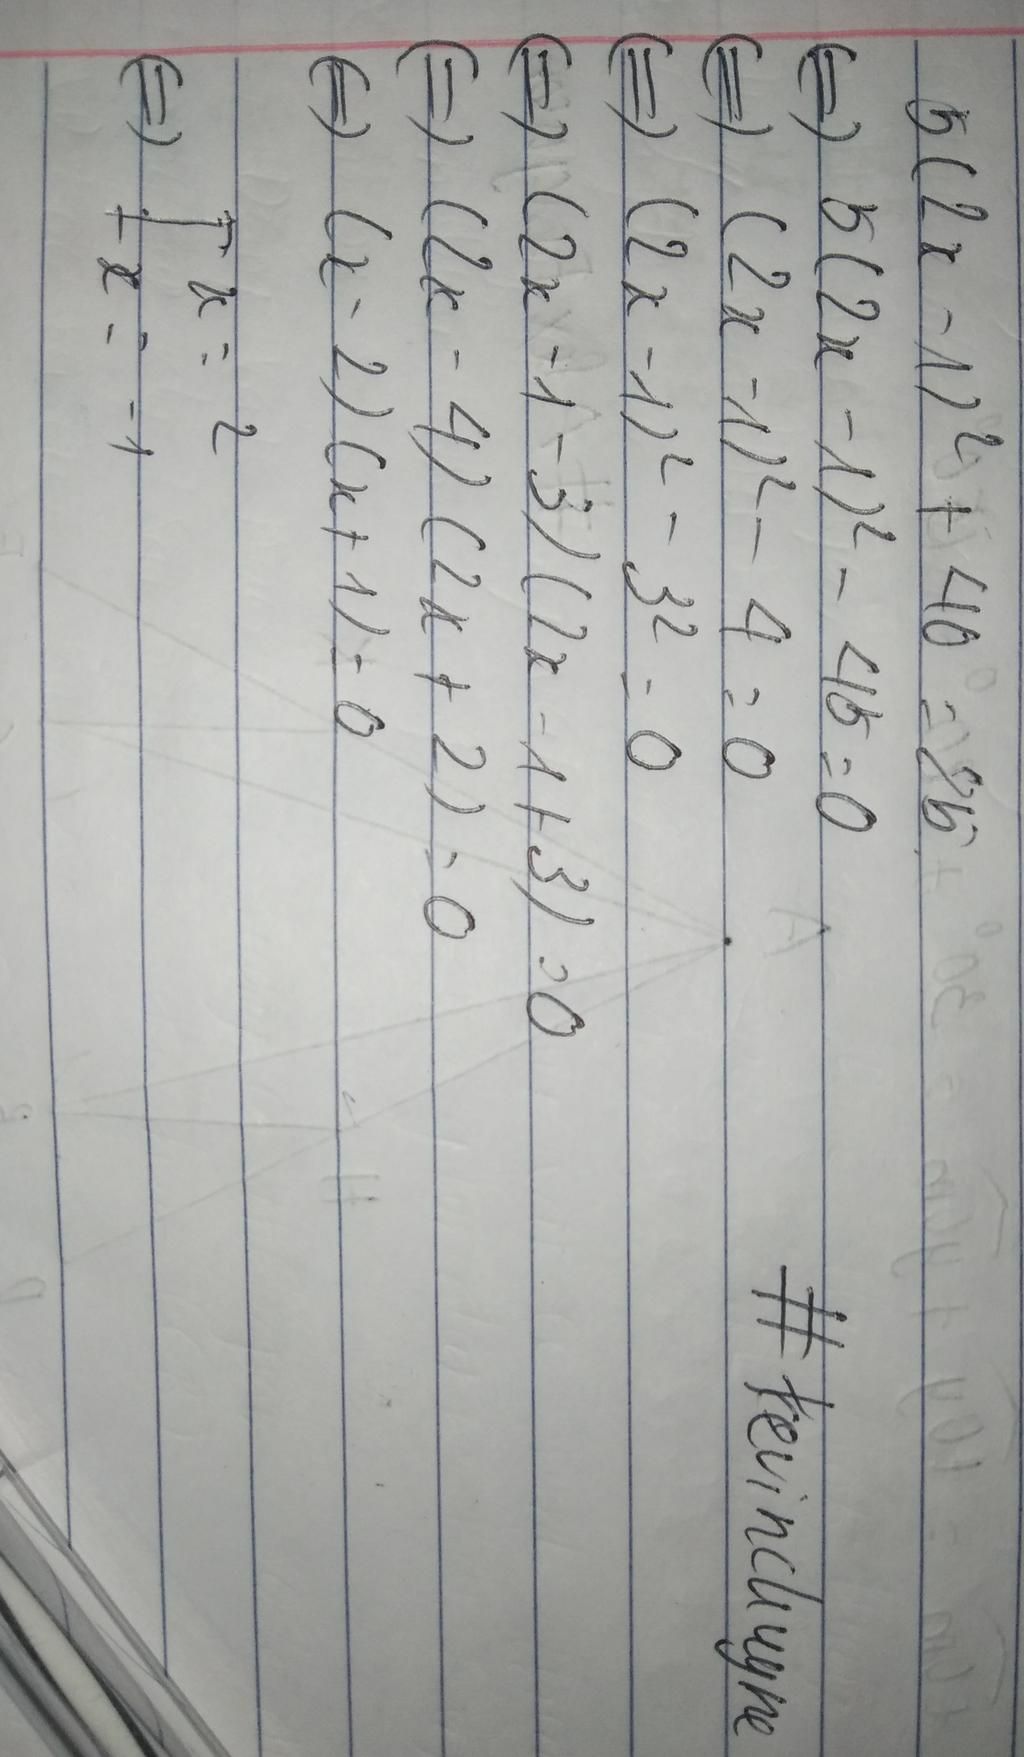 5(2x-1)² + 40 = 85
(=) 5(2x-1)² - 45 = 0
(=) (2x-1)² - 9 = 0
(=) (2x-1)² - 3² = 0
(=) (2x-1-3)(2x-1+3) = 0
(=) (2x-4)(2x+2) = 0
(=) (x-2)(x+1) = 0
(=) [ x = 2
x = -1